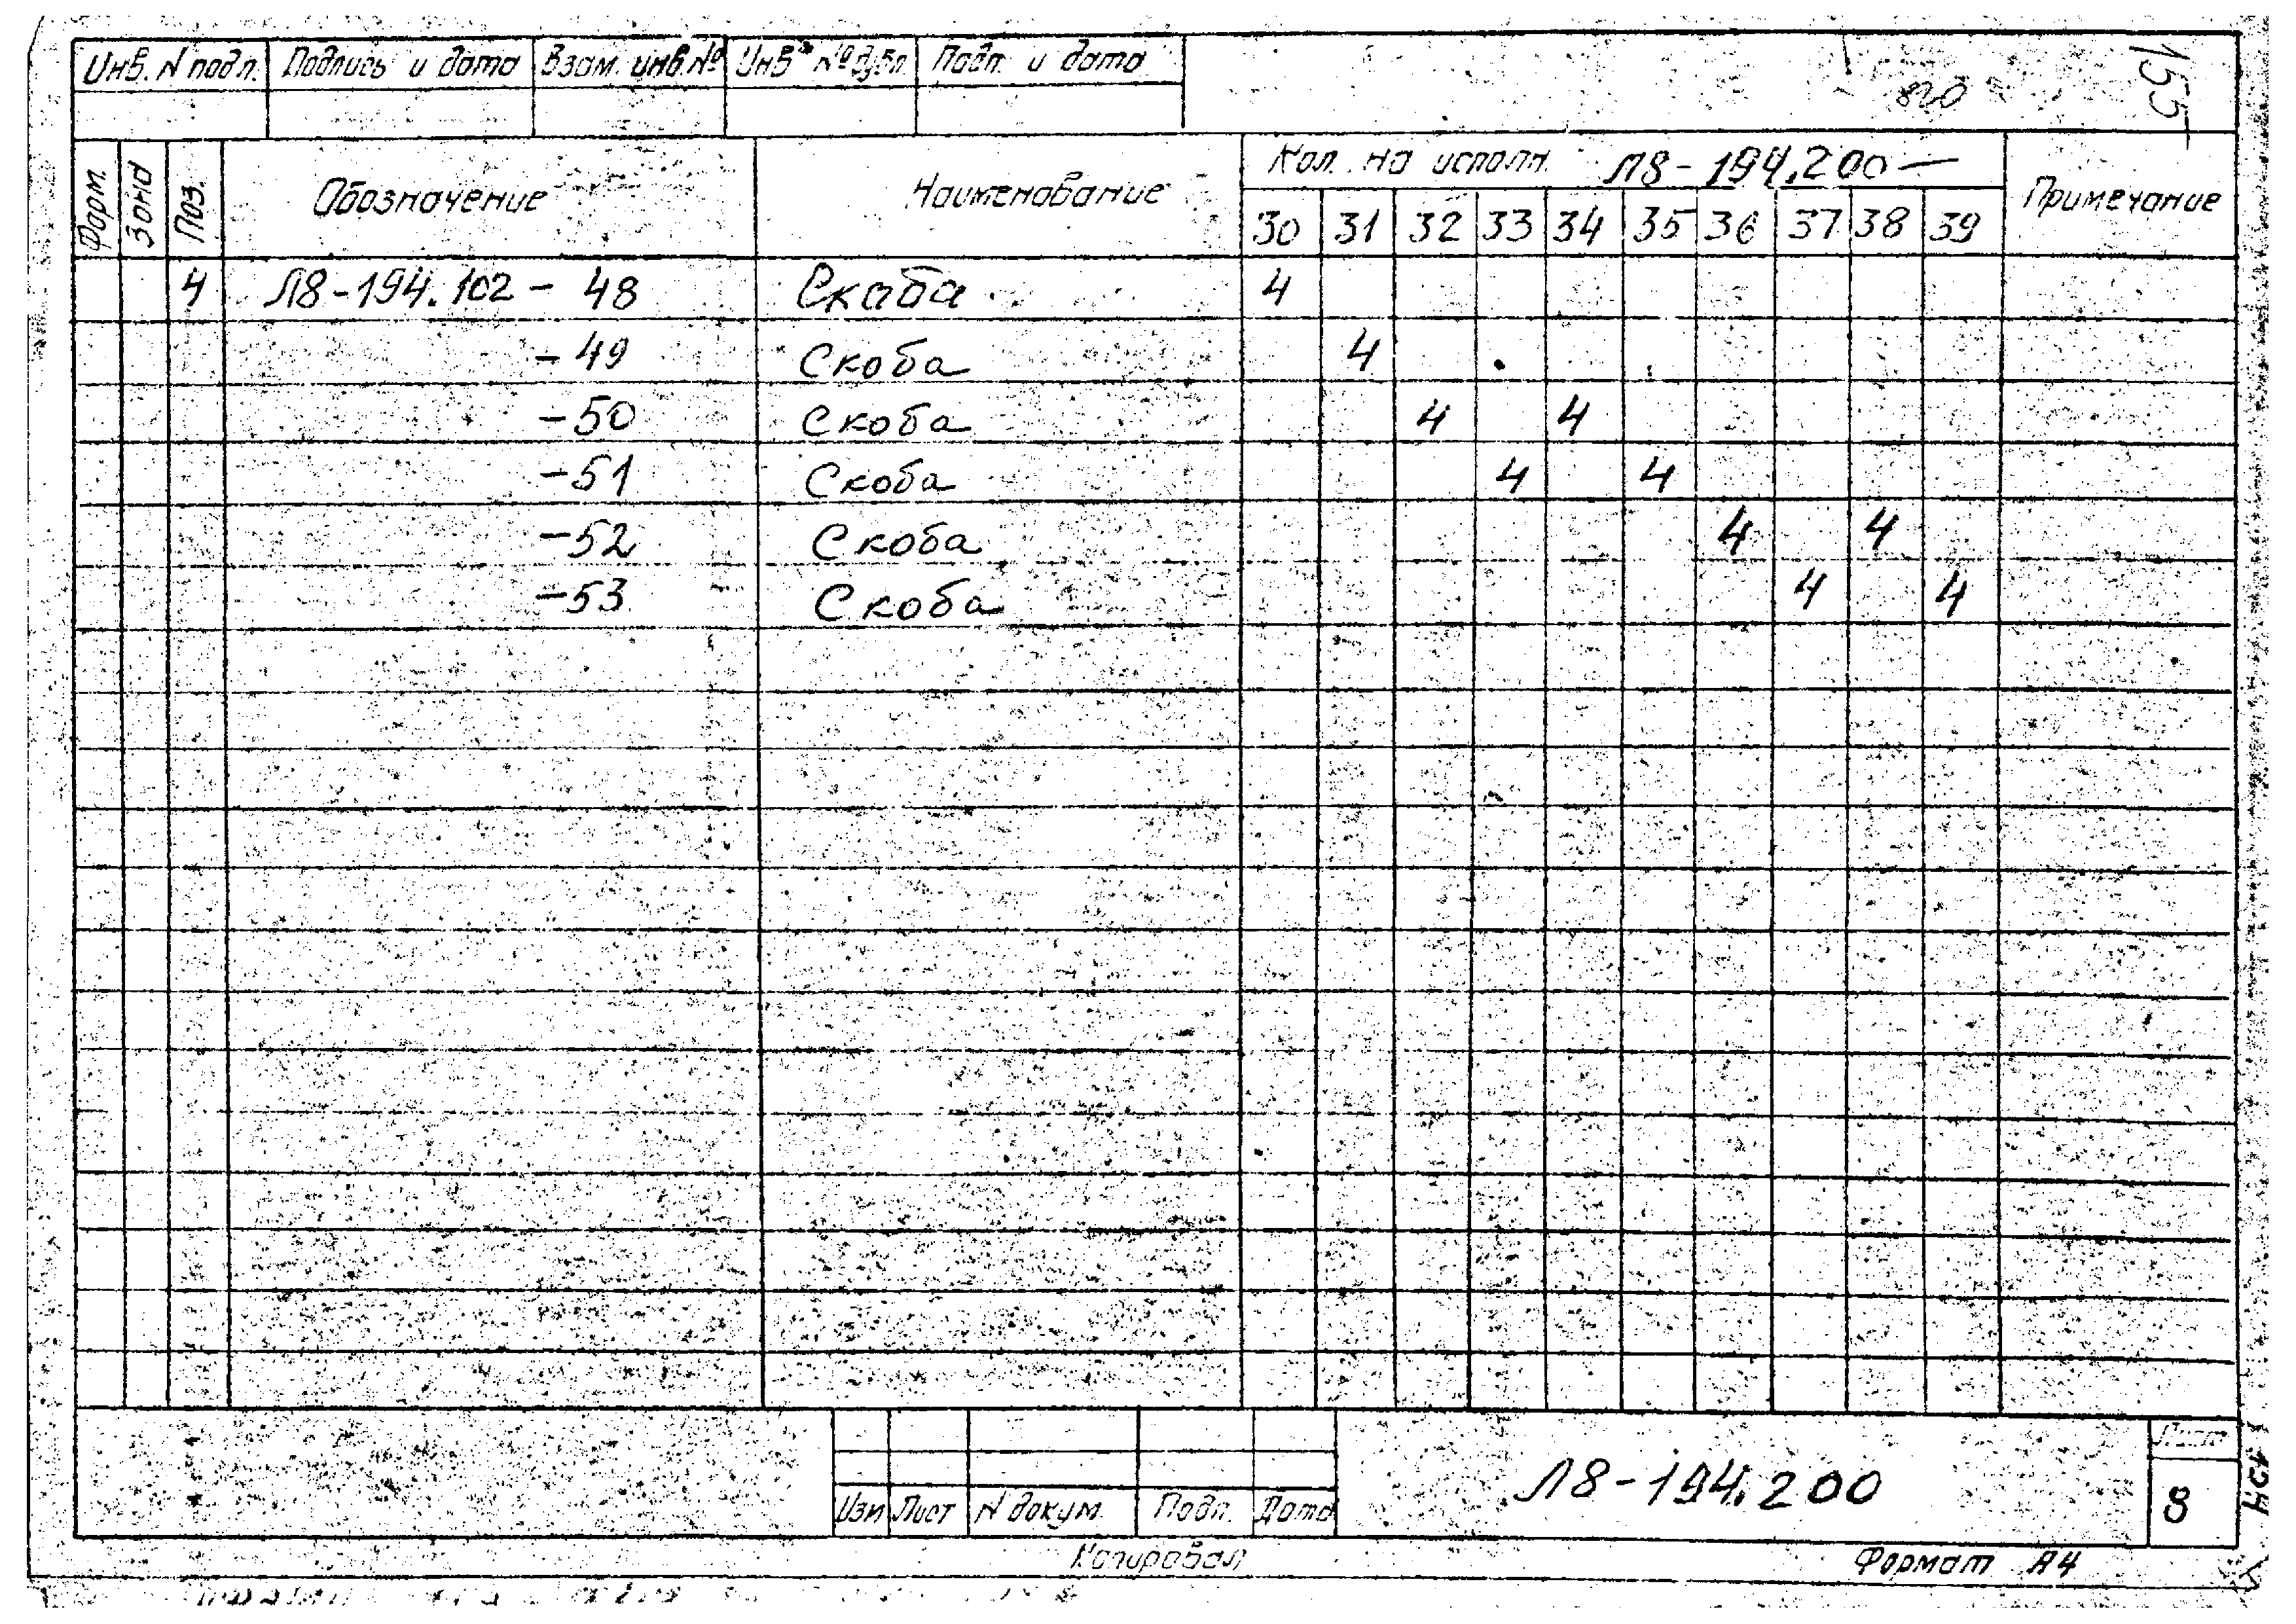 Инв. N подл. Подпись и дата Взам. инв. № Инв № дубл. Подп. и дата
155
Форм. Зона Поз. Обозначение Наименование Кол. на исполн. Л8-194.200— Примечание
30 31 32 33 34 35 36 37 38 39
4 Л8-194.102 - 48 Скоба 4
-49 Скоба 4
-50 Скоба 4 4
-51 Скоба 4 4
-52 Скоба 4 4
-53 Скоба 4 4
Изм Лист N докум. Подп. Дата Л8-194.200 Лист 8
Копировал Формат А4